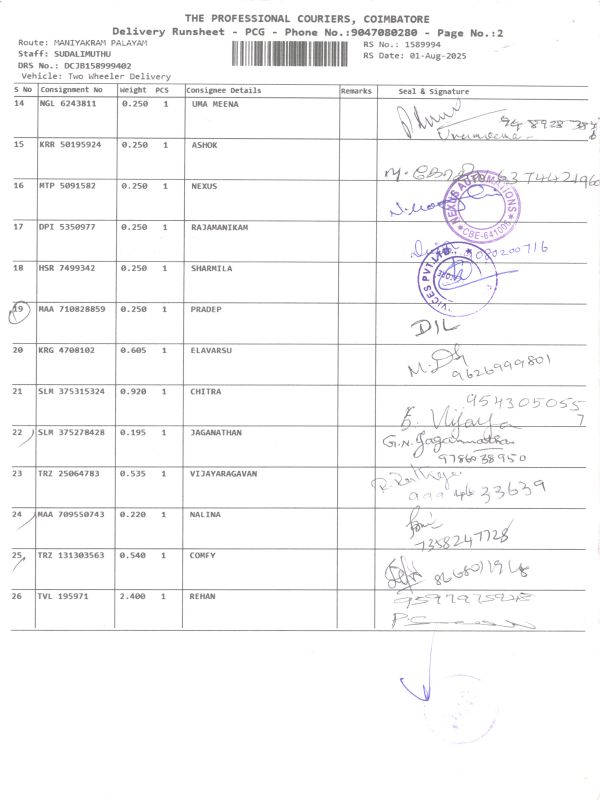 THE PROFESSIONAL COURIERS, COIMBATORE
Delivery Runsheet - PCG - Phone No.:9047080280 - Page No.:2
Route: MANIYAKRAM PALAYAM RS No.: 1589994
Staff: SUDALIMUTHU RS Date: 01-Aug-2025
DRS No.: DCJB158999402
Vehicle: Two Wheeler Delivery
S No Consignment No Weight PCS Consignee Details Remarks Seal & Signature
14 NGL 6243811 0.250 1 UMA MEENA
Umameena
15 KRR 50195924 0.250 1 ASHOK
6374421960
16 MTP 5091582 0.250 1 NEXUS
NEXUS AUTOMATIONS
CBE-641006
17 DPI 5350977 0.250 1 RAJAMANIKAM
18 HSR 7499342 0.250 1 SHARMILA
VICES PVT.LTD.
19 MAA 710828859 0.250 1 PRADEP
DIL
20 KRG 4708102 0.605 1 ELAVARSU
9626999801
21 SLM 375315324 0.920 1 CHITRA
954305055
7
E. Vijaya
22 SLM 375278428 0.195 1 JAGANATHAN
G.N. Jagannathan
9786038950
23 TRZ 25064783 0.535 1 VIJAYARAGAVAN
9994633639
24 MAA 709550743 0.220 1 NALINA
7358247728
25 TRZ 131303563 0.540 1 COMFY
26 TVL 195971 2.400 1 REHAN